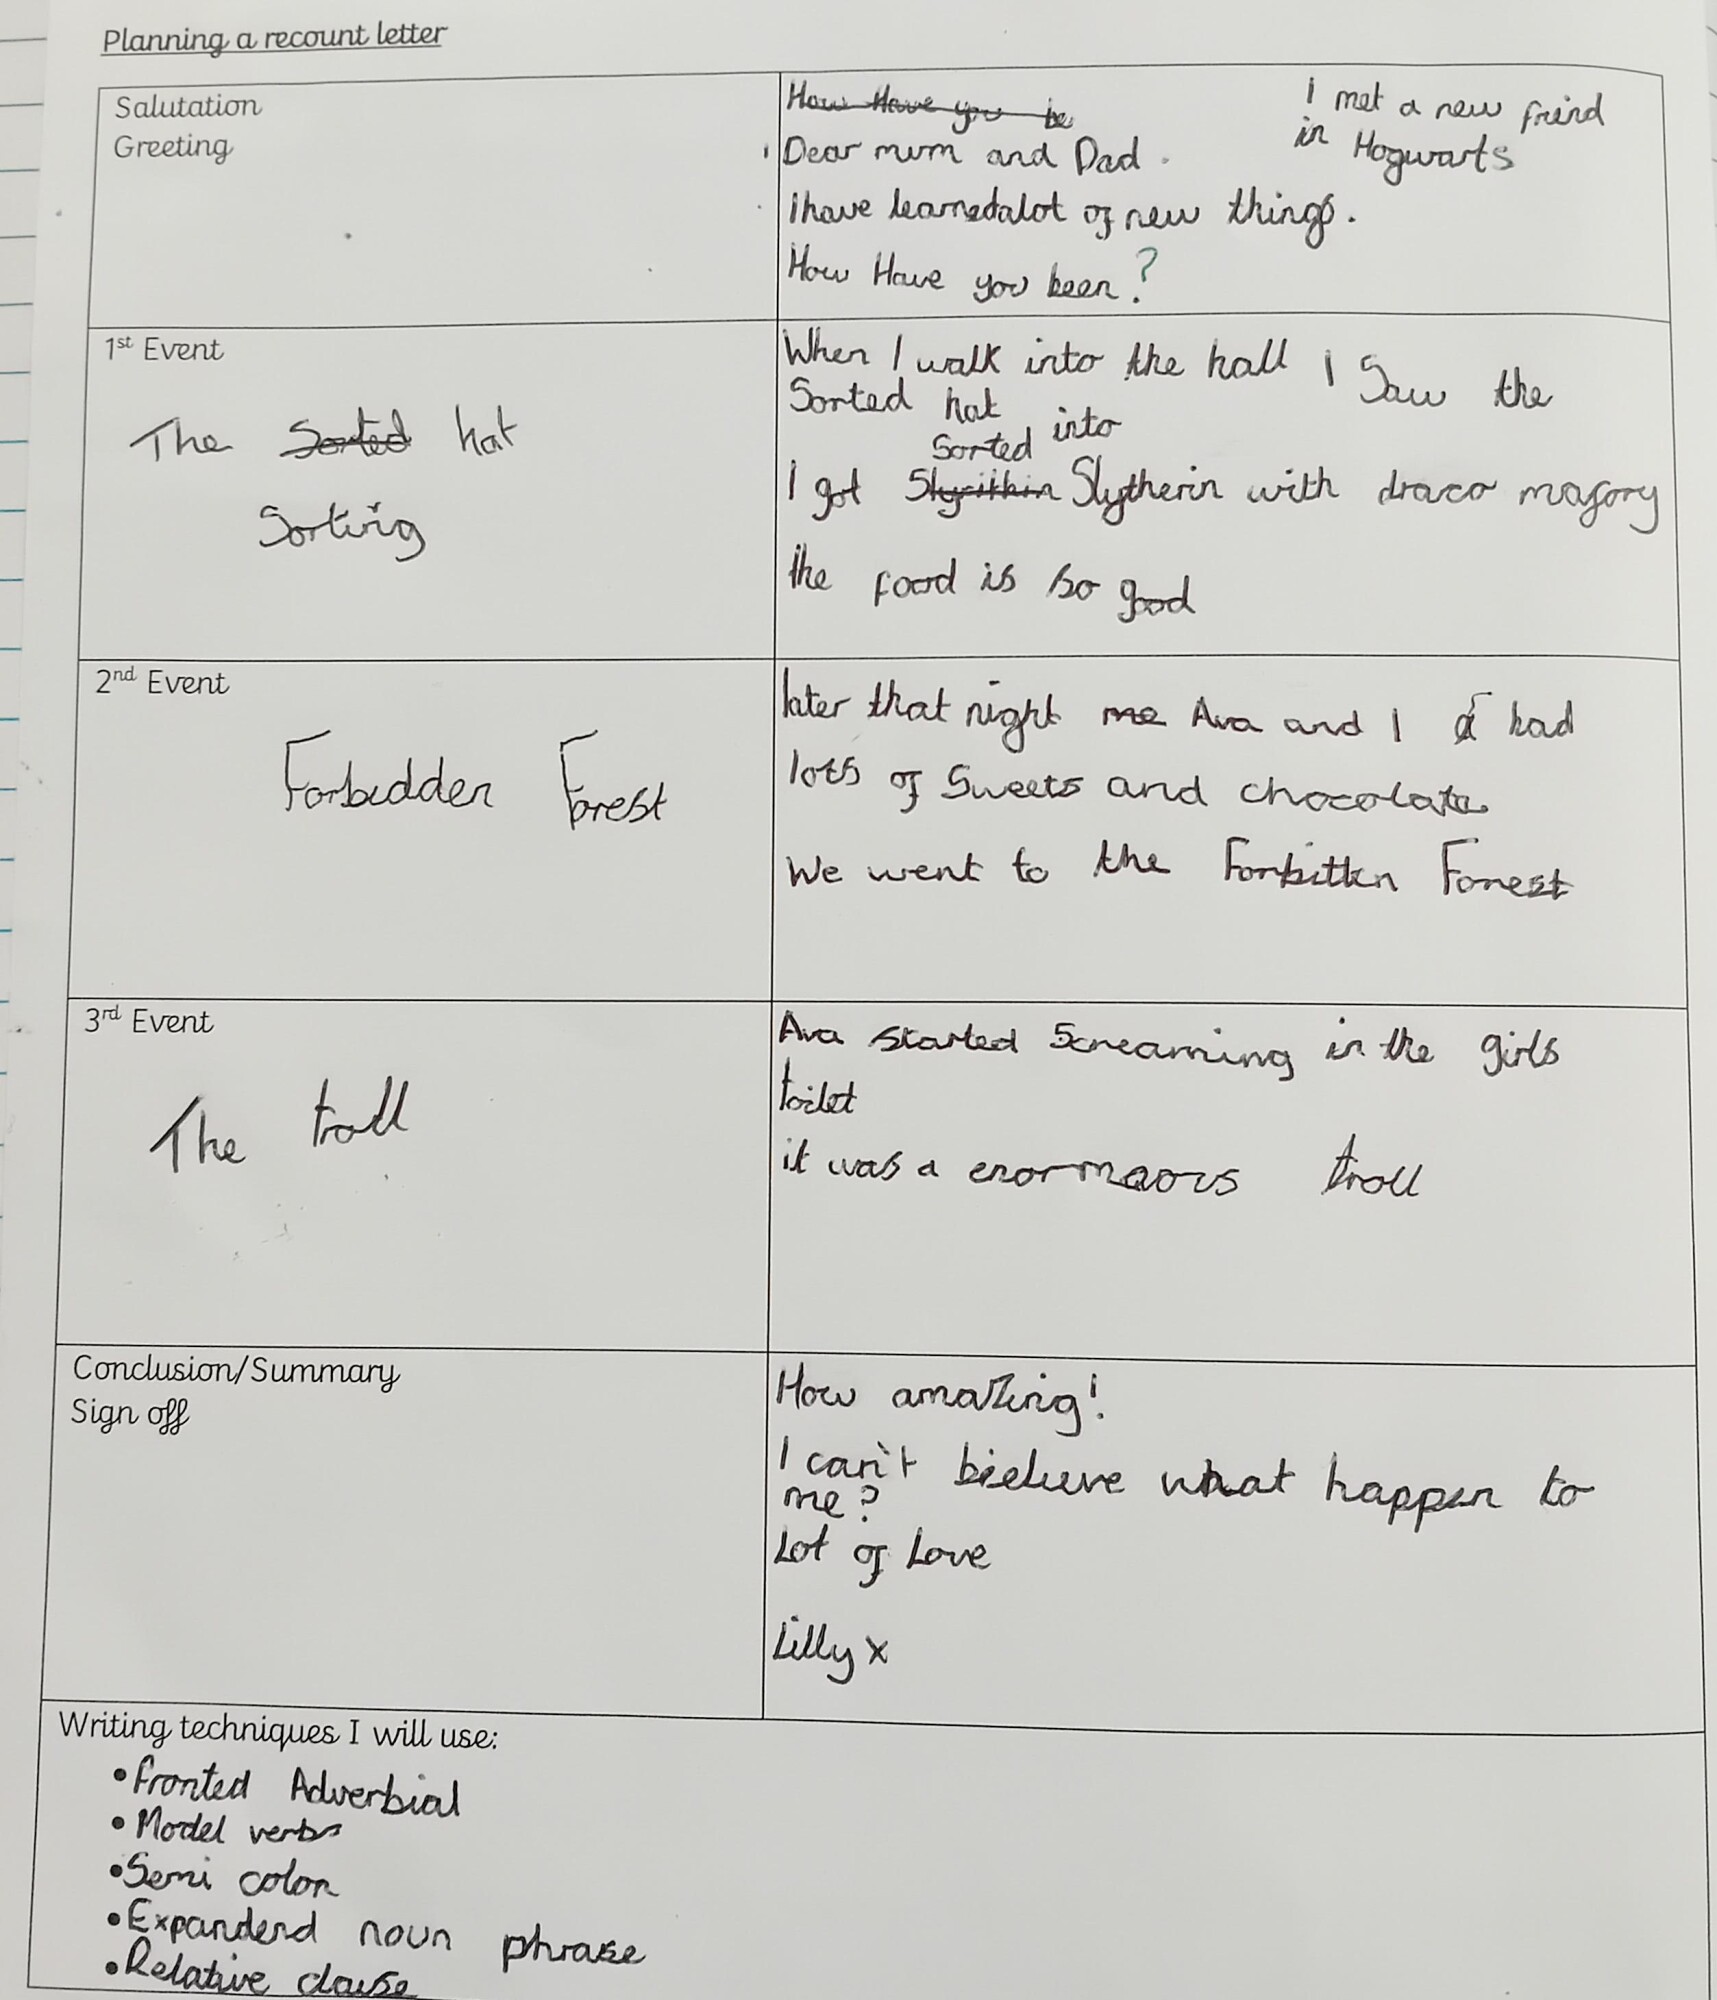 Planning a recount letter
Salutation
Greeting
How Have you be
I met a new freind
in Hogwarts
Dear mum and Dad.
I have learnedalot of new things.
How Have you been?
1st Event
The Sorted hat
Sorting
When I walk into the hall I Saw the
Sorted hat
Sorted into
I got Slyrithin Slytherin with draco mafory
the food is so good
2nd Event
Forbidden Forest
later that night me Ava and I a had
lots of Sweets and chocolate
We went to the Forbitten Forest
3rd Event
The troll
Ava started Screaming in the girls
toilet
it was a enormaous troll
Conclusion/Summary
Sign off
How amazing!
I can't bieleve what happen to
me?
Lot of Love
Lilly x
Writing techniques I will use:
• Fronted Adverbial
• Model verbs
• Semi colon
• Expanderd noun phrase
• Relative clause